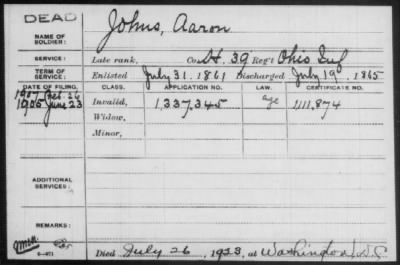 DEAD
NAME OF SOLDIER: Johns, Aaron
SERVICE: Late rank, Co. H. 39 Reg't Ohio Inf
TERM OF SERVICE: Enlisted July 31. 1861 Discharged July 19. 1865
DATE OF FILING. CLASS. APPLICATION NO. LAW. CERTIFICATE NO.
1907 Feb. 26
1905 June 23 Invalid, 1,337,345 age 1,111,874
Widow,
Minor,
ADDITIONAL SERVICES:
REMARKS:
6—471 Died July 26, 1923, at Washington, D.C.